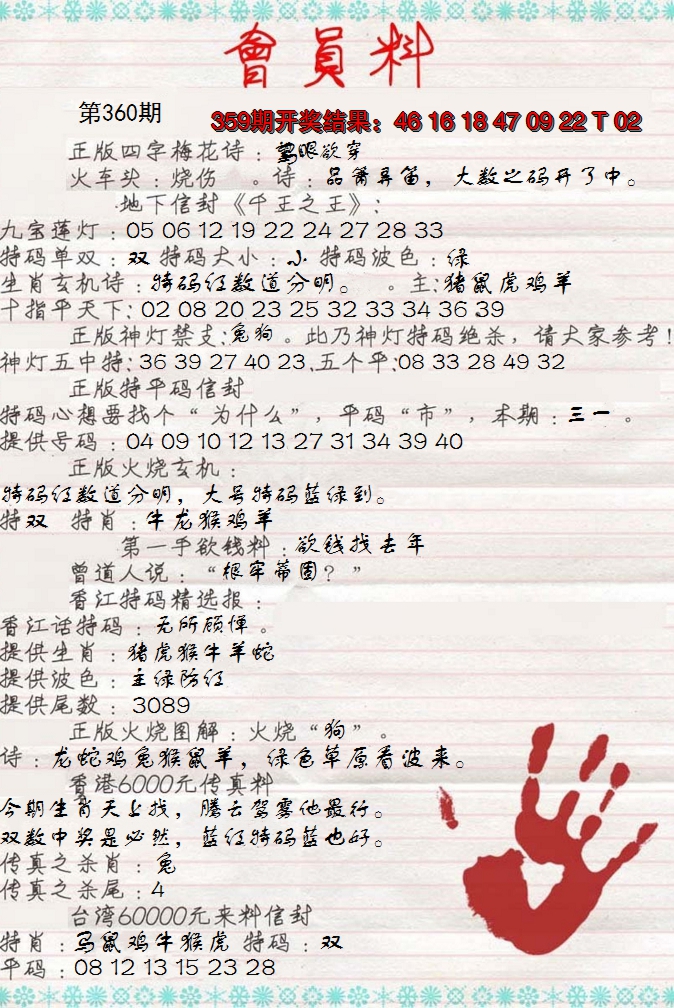 會員料
第360期
359期开奖结果：46 16 18 47 09 22 T 02
正版四字梅花诗：望眼欲穿
火车头：烧伤 。诗：品箫弄笛，大数之码开了中。
地下信封《千王之王》：
九宝莲灯：05 06 12 19 22 24 27 28 33
特码单双：双 特码大小：小 特码波色：绿
生肖玄机诗：特码红数道分明。 。主:猪鼠虎鸡羊
十指平天下: 02 08 20 23 25 32 33 34 36 39
正版神灯禁支:兔狗 。此乃神灯特码绝杀，请大家参考！
神灯五中特: 36 39 27 40 23.五个平:08 33 28 49 32
正版特平码信封
特码心想要找个“为什么”，平码“市”，本期：三一 。
提供号码：04 09 10 12 13 27 31 34 39 40
正版火烧玄机：
特码红数道分明，大号特码蓝绿到。
特双 特肖：牛龙猴鸡羊
第一手欲钱料：欲钱找去年
曾道人说：“根牢蒂固？”
香江特码精选报：
香江话特码：无所顾惮 。
提供生肖：猪虎猴牛羊蛇
提供波色：主绿防红
提供尾数： 3089
正版火烧图解：火烧“狗”。
诗：龙蛇鸡兔猴鼠羊，绿色草原看波来。
香港6000元传真料
今期生肖天上找，腾云驾雾他最行。
双数中奖是必然，蓝红特码蓝也好。
传真之杀肖：兔
传真之杀尾：4
台湾60000元来料信封
特肖：马鼠鸡牛猴虎 特码：双
平码：08 12 13 15 23 28